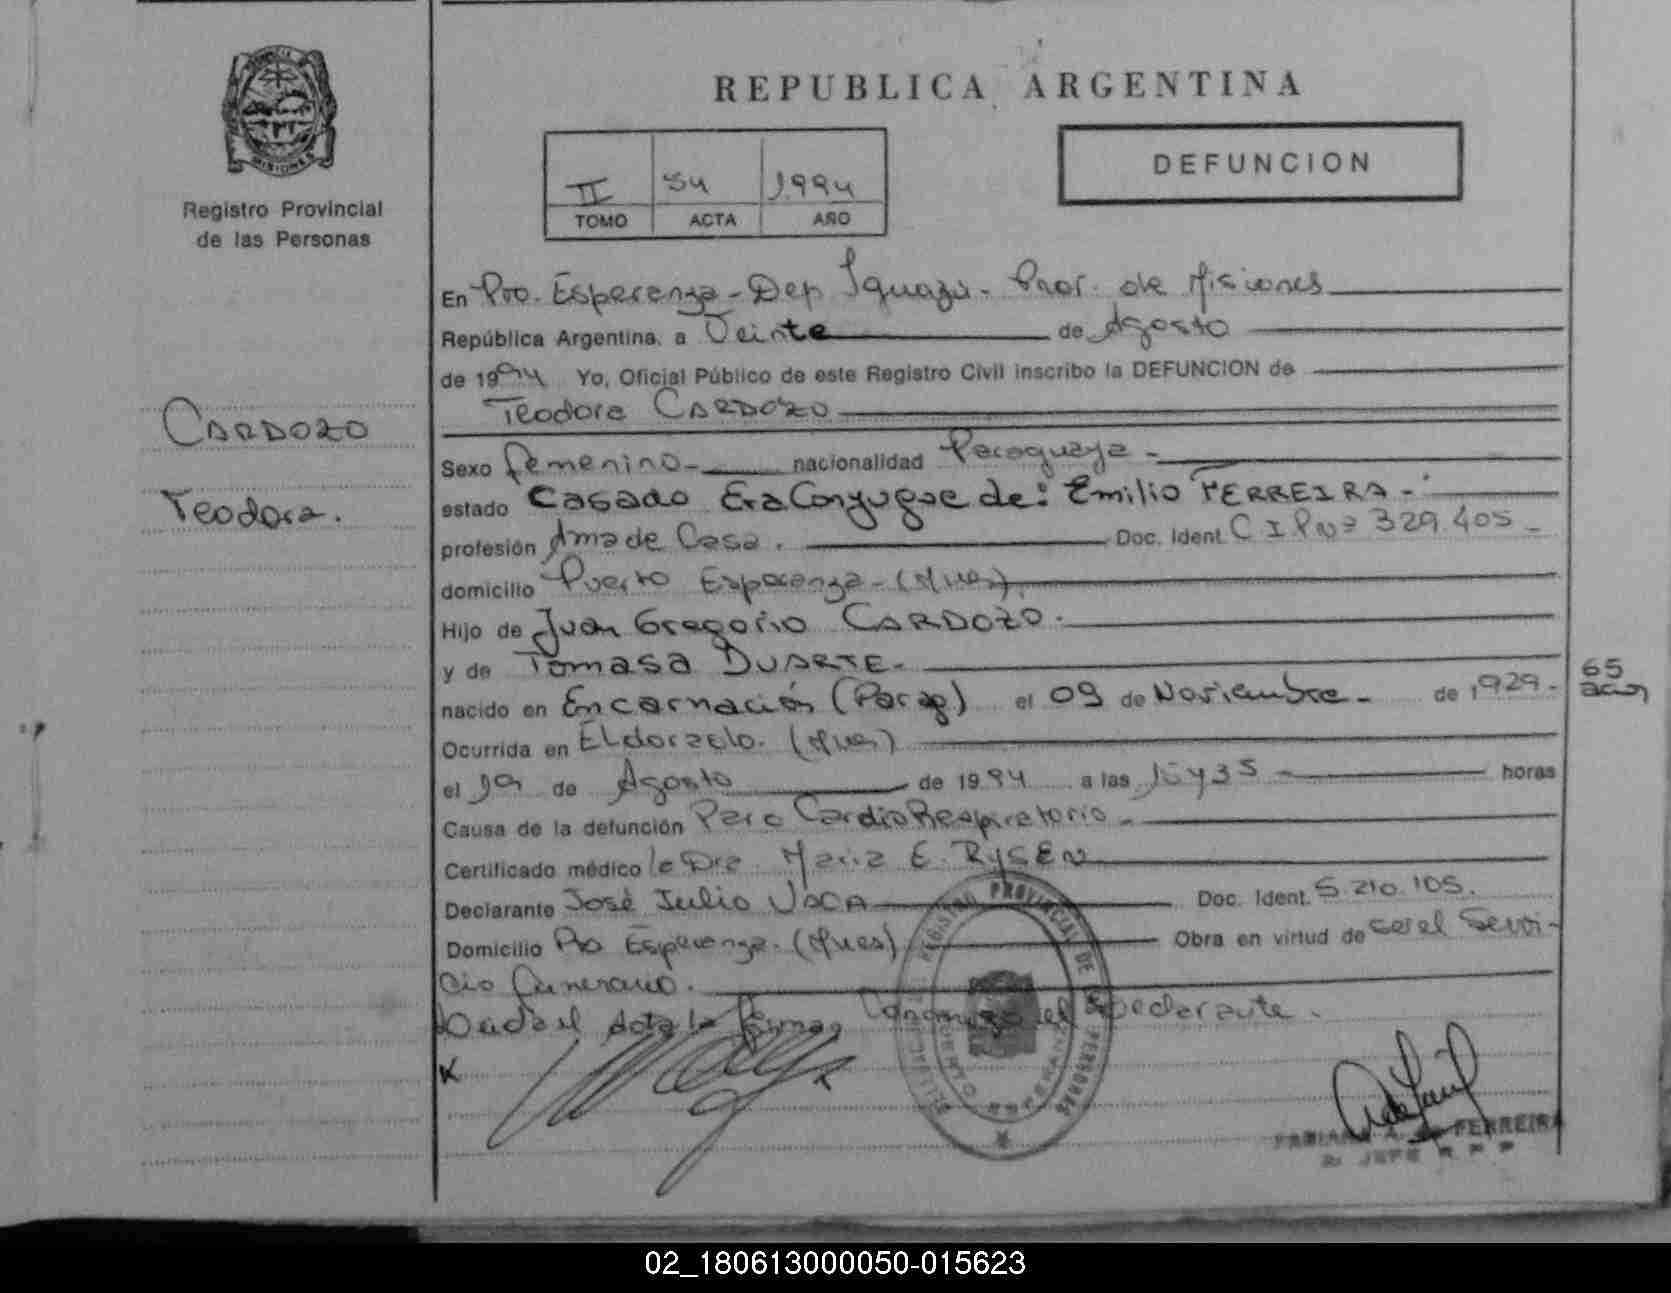 REPUBLICA ARGENTINA
MISIONES
Registro Provincial
de las Personas
II 54 1994
TOMO ACTA AÑO
DEFUNCION
CARDOZO
Teodora.
En Pto. Esperanza - Dep Iguazú - Prov. de Misiones
República Argentina, a Veinte de Agosto
de 1994 Yo, Oficial Público de este Registro Civil inscribo la DEFUNCION de
Teodora CARDOZO
Sexo femenino - nacionalidad Paraguaya -
estado Casado Era Conyugue de: Emilio FERREIRA -
profesión Ama de Casa. Doc. Ident. C I P Nº 329.405 -
domicilio Puerto Esperanza - (Mnes)
Hijo de Juan Gregorio CARDOZO.
y de TOMASA DUARTE.
nacido en Encarnación (Parag) el 09 de Noviembre - de 1929 -
65
años
Ocurrida en Eldorado. (Mnes)
el 19 de Agosto de 1994 a las y 35 - horas
Causa de la defunción Paro CardioRespiratorio -
Certificado médico la Dra. Maria E. RYSEN
Declarante José Julio VACA Doc. Ident. 5.210.105.
Domicilio Pto Esperanza. (Mnes) Obra en virtud de ser el Servi-
cio funerario.
Leida el Acta la firma el Declarante.
REGISTRO PROVINCIAL DE LAS PERSONAS
FABIANA A. de FERREIRA
JEFE R P P
02_180613000050-015623